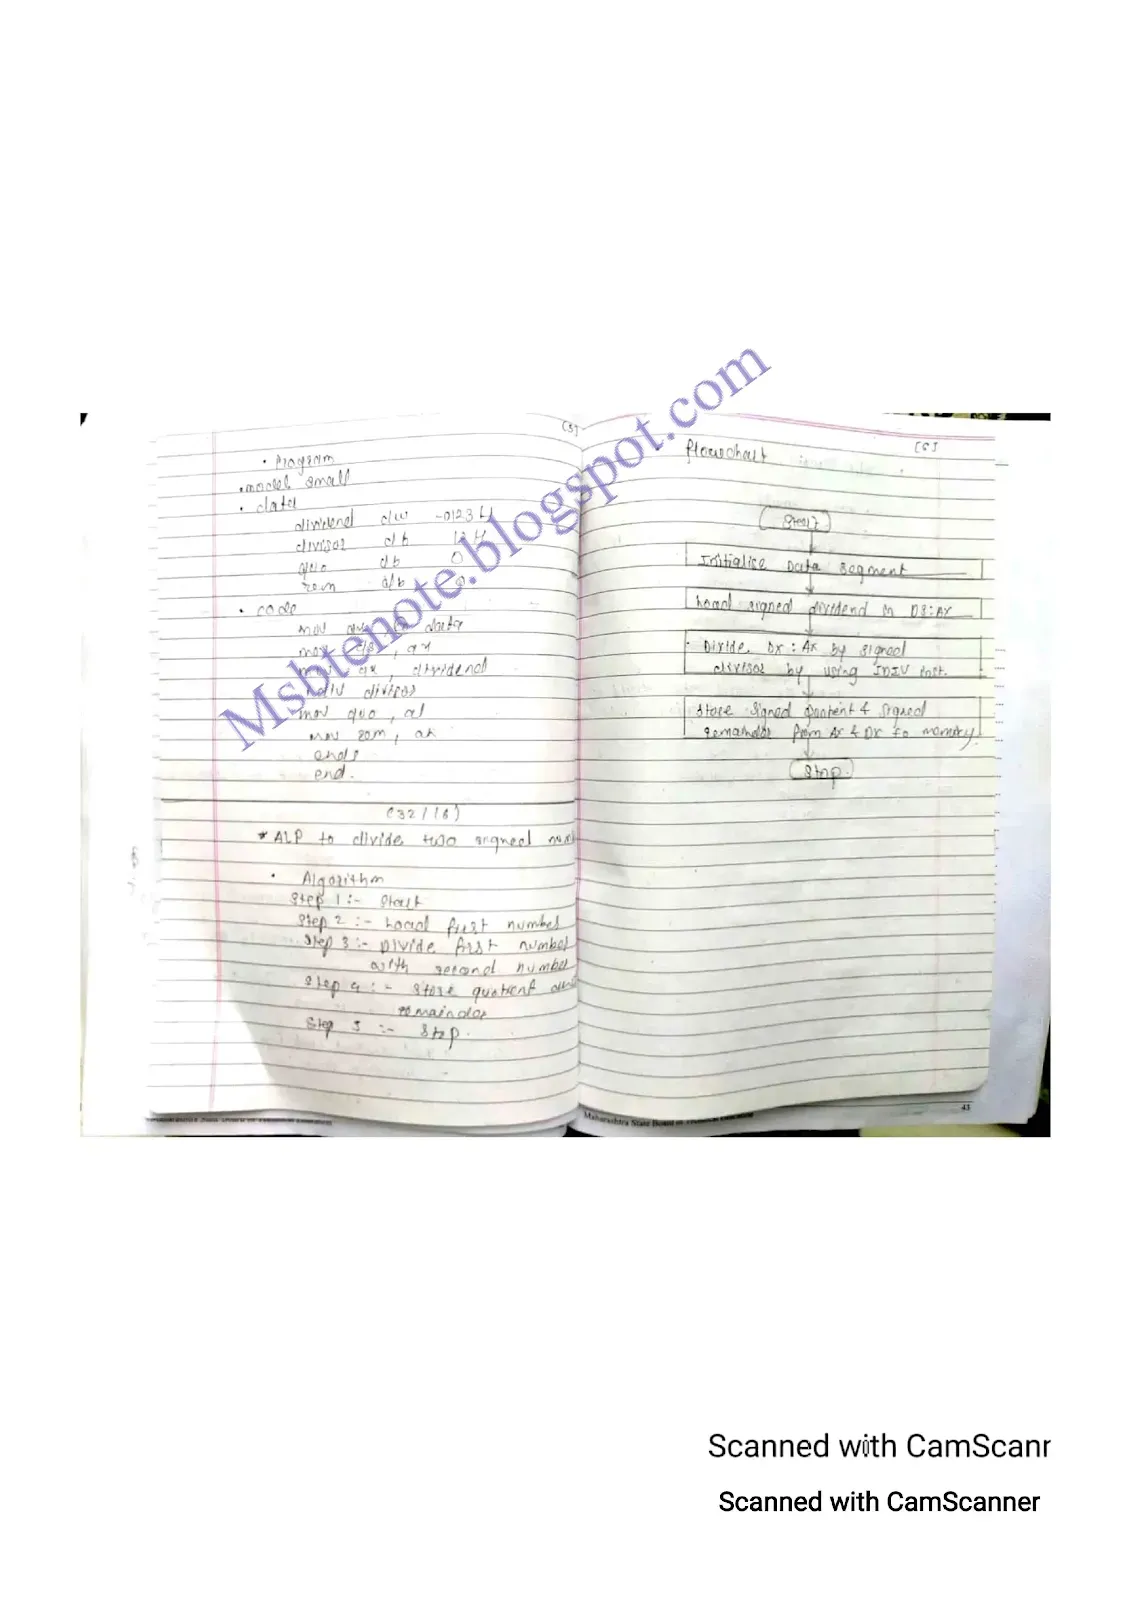 [5]
• Program
.model small
. data
dividend dw -0123H
divisor db 12H
quo db 0
rem db 0
. code
mov data
mov ds, ax
mov ax, dividend
divisor
mov quo, al
mov rem, ah
ends
end.
(32/16)
* ALP to divide two signed
• Algorithm
Step 1 :- Start
Step 2 :- Load first number
Step 3 :- Divide first number
with second number
Step 4 :- Store quotient
remainder
Step 5 :- Stop.
[6]
flowchart
Start
Initialise Data Segment
Load signed dividend in DS:AX
Divide DX : AX by signed
divisor by using IDIV inst.
Store signed & signed
remainder from AX & DX to memory.
Stop.
Maharashtra State Board of Technical Education
43
Msbtenote.blogspot.com
Scanned with CamScanr
Scanned with CamScanner